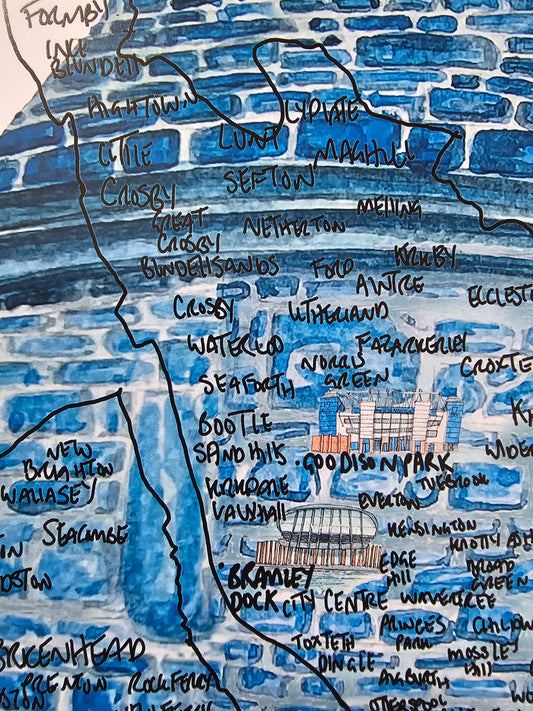 FORMBY
INCE
BLUNDELL
HIGHTOWN
LYDIATE
LITTLE
CROSBY
LUNT
MAGHULL
SEFTON
GREAT
CROSBY
NETHERTON
MELLING
BLUNDELLSANDS
FORD
KIRKBY
AINTRE
ECCLEST
CROSBY
LITHERLAND
WATERLOO
FAZARKERLEY
NORRIS
GREEN
CROXTE
SEAFORTH
BOOTLE
SANDHILLS
• GOODISON PARK
WIDE
TUEBROOK
NEW
BRIGHTON
WALLASEY
KIRKDALE
VAUXHALL
EVERTON
KENSINGTON
KNOTTY ASH
SEACOMBE
EDGE
HILL
BROAD
GREEN
• BRAMLEY
DOCK
CITY CENTRE
WAVERTREE
PRINCES
PARK
BIRKENHEAD
TOXTETH
DINGLE
MOSSLEY
HILL
PRENTON
ROCKFERRY
AIGBURTH
OTTERSPOOL